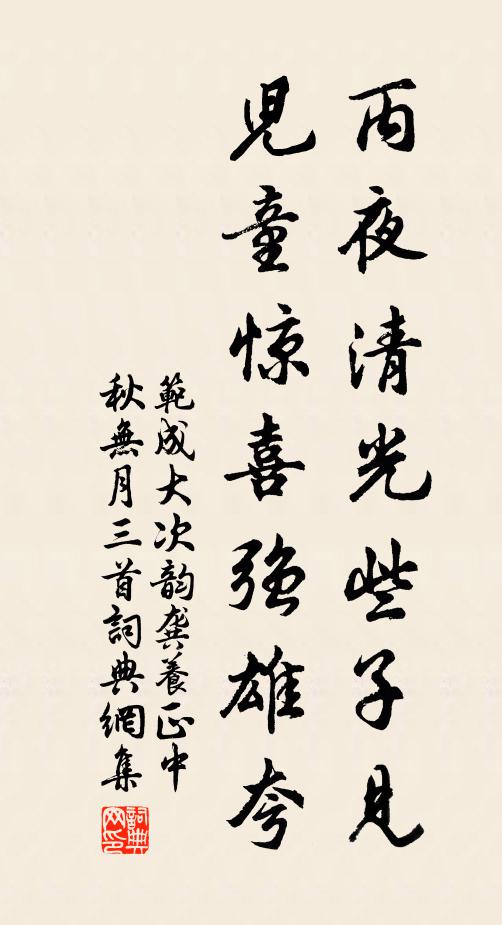 丙夜清光些子見
兒童惊喜强雄夸
範成大次韵龚養正中
秋無月三首詞典網集
詞典网印